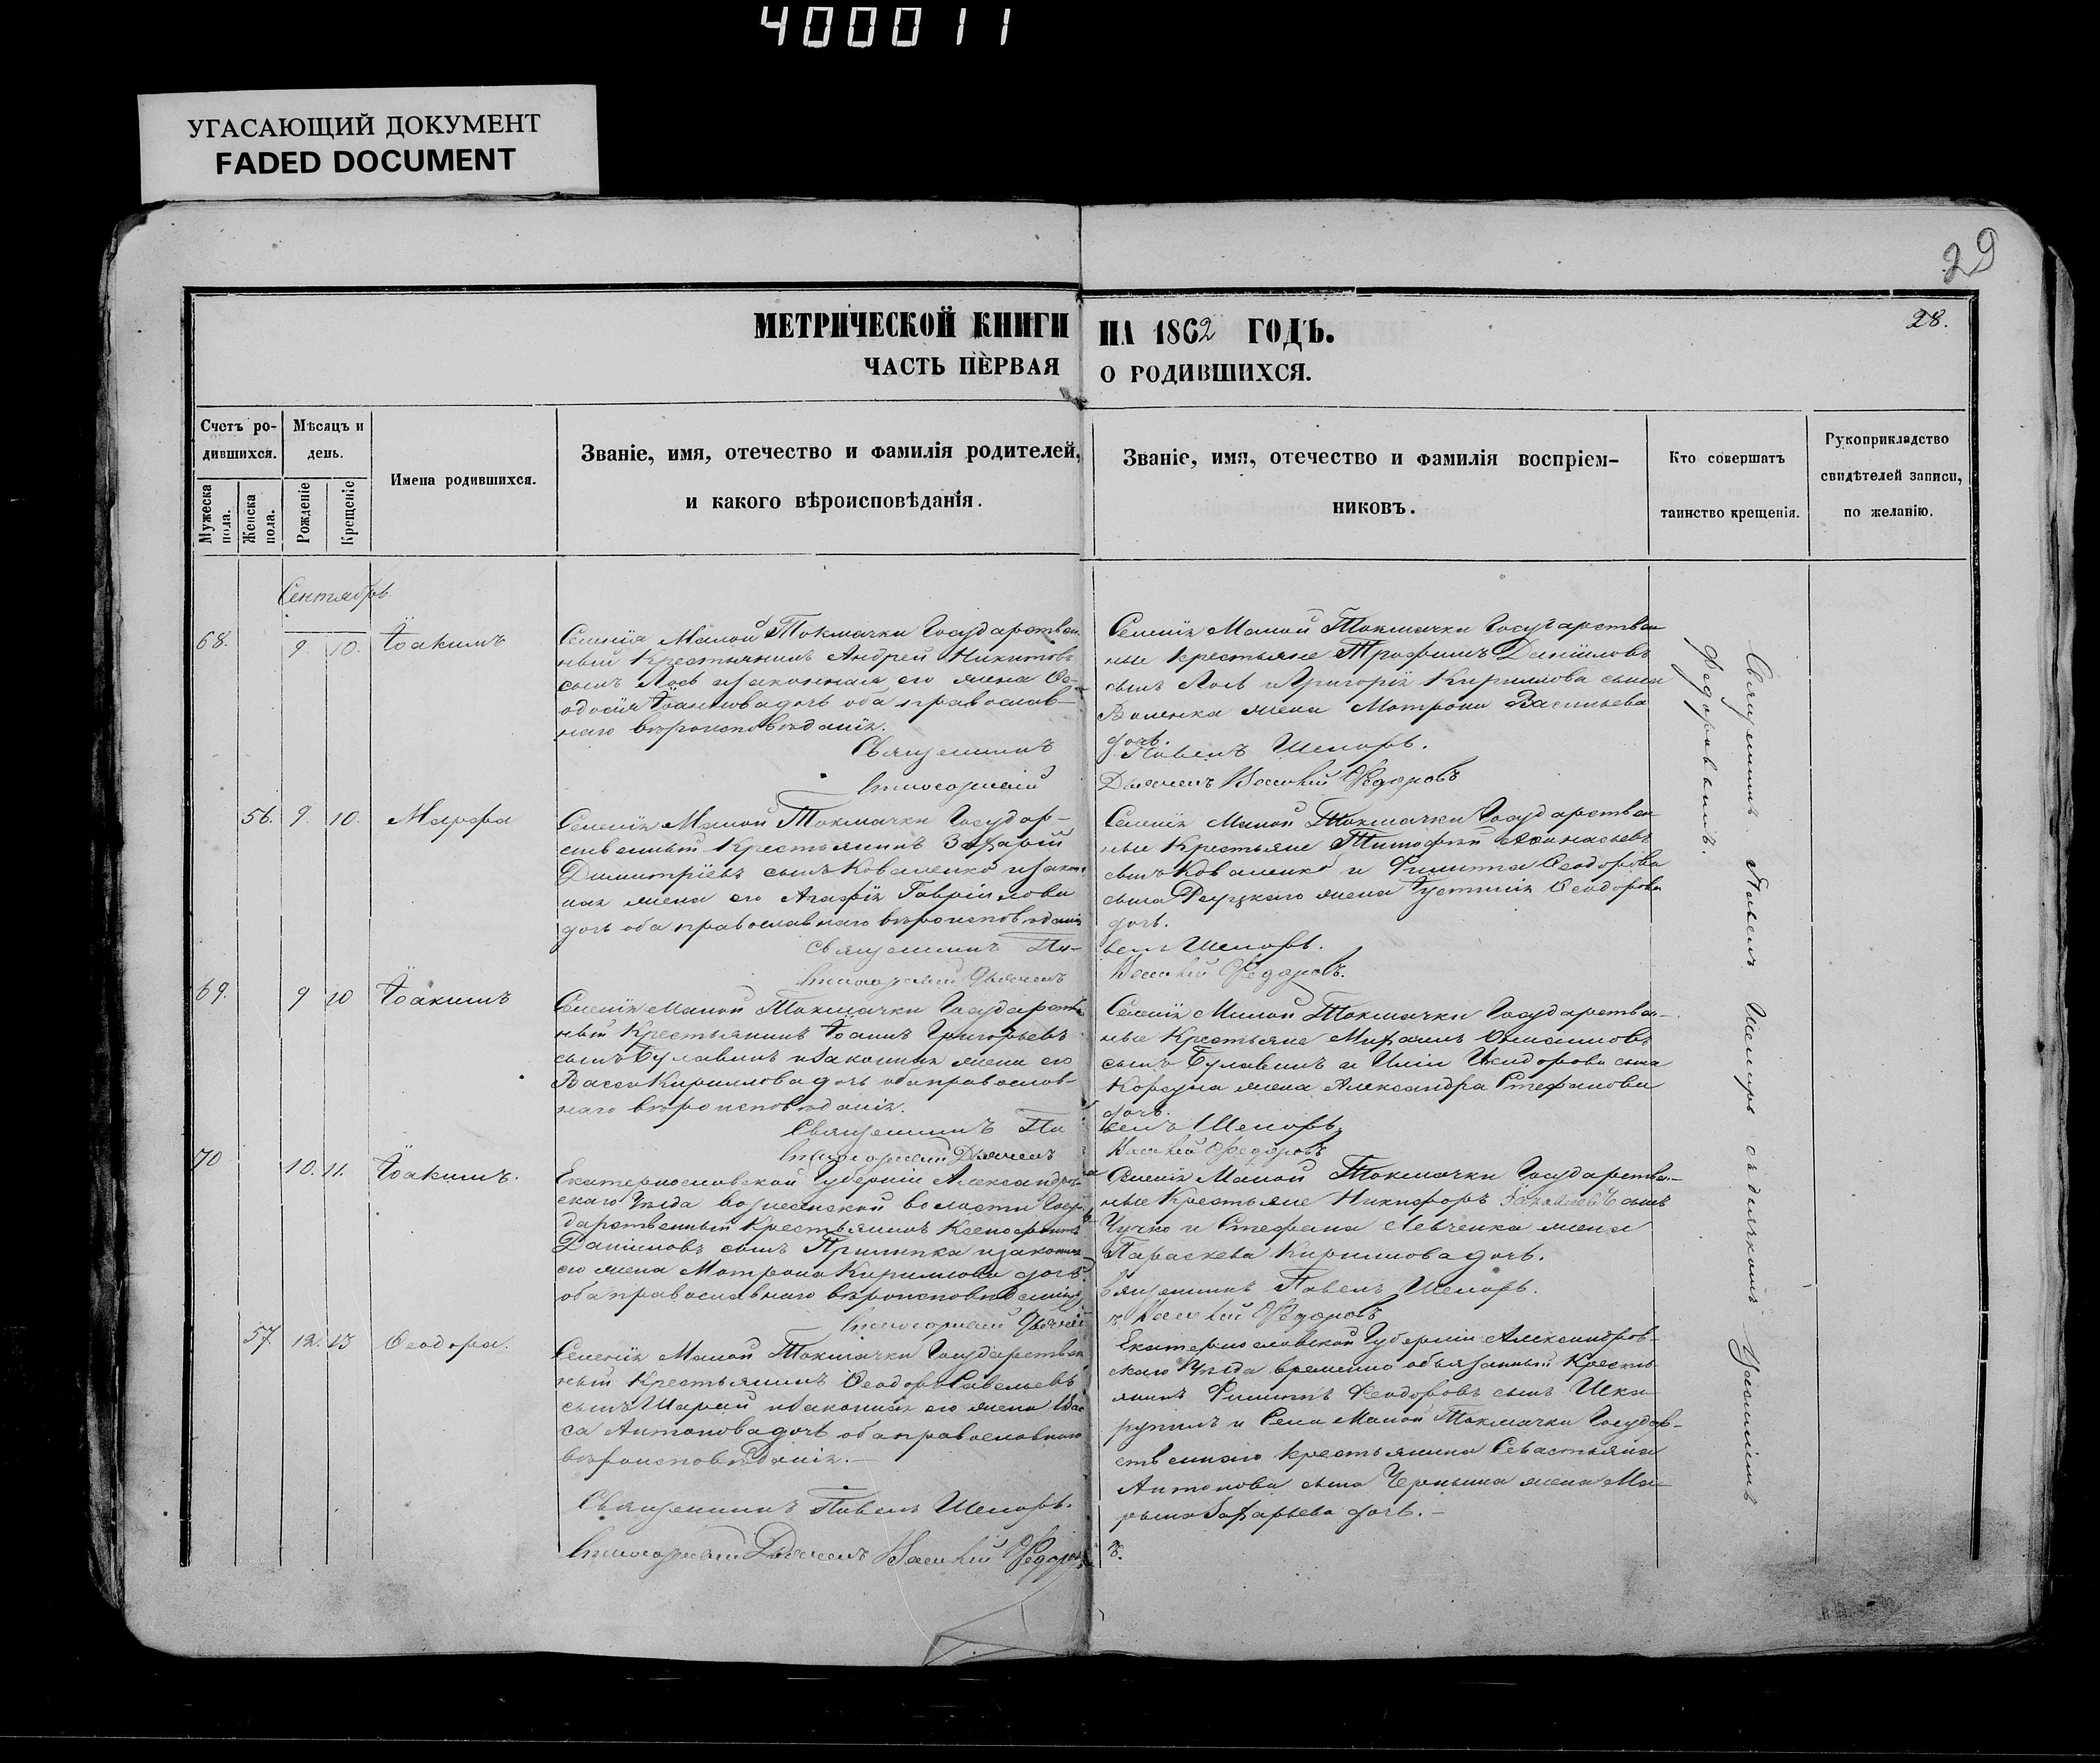 400011
УГАСАЮЩИЙ ДОКУМЕНТ
FADED DOCUMENT
29
28.
МЕТРИЧЕСКОЙ КНИГИ НА 1862 ГОДЪ.
ЧАСТЬ ПЕРВАЯ О РОДИВШИХСЯ.
Счетъ ро-
дившихся.
Мужеска пола.
Женска пола.
Мѣсяцъ и
день.
Рожденіе
Крещеніе
Имена родившихся.
Званіе, имя, отечество и фамилія родителей,
и какого вѣроисповѣданія.
Званіе, имя, отечество и фамилія воспріем-
никовъ.
Кто совершатъ
таинство крещенія.
Рукоприкладство
свидѣтелей записи,
по желанію.
Сентябрь
68. 9. 10. Іоакимъ
Селенія Малой Токмачки Государствен
ный Крестьянинъ Андрей Никитовъ
сынъ Лось и законная его жена Ѳе-
одосія Іоаннова дочь оба православ-
наго вѣроисповѣданія.
Священникъ
Селенія Малой Токмачки Государствен
ные крестьяне Трофимъ Даніиловъ
сынъ Лось и Григорія Кириллова сына
Воленка жена Матрона Васильева
дочь.
Павелъ Шепарь.
Дьячекъ Василій Ѳедоровъ
56. 9. 10. Марфа
Селенія Малой Токмачки Государ-
ственный Крестьянинъ Захарій
Димитріевъ сынъ Коваленко и закон
ная жена его Агафія Гавріилова
дочь оба православнаго вѣроисповѣданія
Священникъ Па-
Дьячекъ
Селенія Малой Токмачки Государствен
ные Крестьяне Тимофей Аѳанасьевъ
сынъ Коваленко и Филиппа Ѳеодорова
сына жена Іустинія Ѳеодорова
дочь.
велъ Шепарь.
Василій Ѳедоровъ.
69. 9 10 Іоакимъ
Селенія Малой Токмачки Государствен
ный Крестьянинъ Іоаннъ Григорьевъ
сынъ Булавинъ и законная жена его
Васса Кириллова дочь оба православ-
наго вѣроисповѣданія.
Священникъ Па
Дьячекъ
Селенія Малой Токмачки Государствен-
ные Крестьяне Михаилъ
сынъ Булавинъ и Иліи Исидорова сына
Корсуна жена Александра Стефанова
дочь.
велъ Шепарь
Василій Ѳедоровъ
70 10. 11. Іоакимъ.
Екатеринославской Губерніи Александров
скаго Уѣзда Вознесенской волости Госу
дарственный крестьянинъ Ксенофонтъ
Даніиловъ сынъ Прилипка и законная
его жена Матрона Кириллова дочь
оба православнаго вѣроисповѣданія
Селенія Малой Токмачки Государствен-
ные Крестьяне Никифоръ сынъ
Чучко и Стефана Левченка жена
Параскева Кириллова дочь.
вященникъ Павелъ Шепарь.
ъ Василій Ѳедоровъ
57. 12. 13 Ѳеодора.
Селенія Малой Токмачки Государствен
ный Крестьянинъ Ѳеодоръ Савельевъ
сынъ Шарый и законная его жена Вас
са Антонова дочь оба православнаго
вѣроисповѣданія.
Священникъ Павелъ Шепарь.
Дьячекъ Василій Ѳедоровъ.
Екатеринославской Губерніи Александров-
скаго Уѣзда временно обязанный Кресть
янинъ Филиппъ Ѳеодоровъ сынъ Шка-
рупилъ и Села Малой Токмачки Государ-
ственнаго крестьянина Севастьяна
Антонова сына Черныша жена Ма-
Захарьева дочь.
Священникъ Павелъ Шепарь съ дьячкомъ Василіемъ
Ѳедоровымъ.